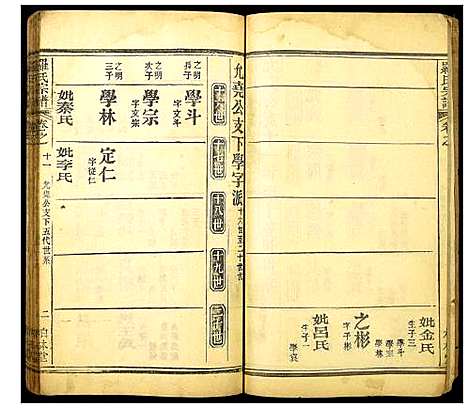 羅氏宗譜
卷之
妣金氏
生子三
學斗
學宗
學林
之彬
字子彬
妣呂氏
生子一
學袁
允堯公支下學字派
十六世至二十世
十六世
十七世
十八世
十九世
二十世
之明
長子
學斗
字文斗
之明
次子
學宗
字文宗
之明
三子
學林
定仁
字從仁
妣秦氏
妣李氏
羅氏宗譜
卷之
十一
允堯公支下五代世系
二
白林堂